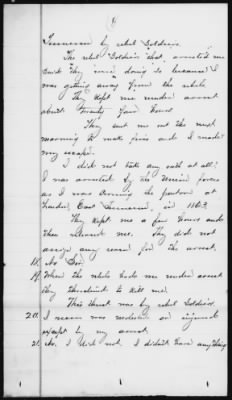 Tennessee by rebel Soldiers.
The rebel Soldiers that arrested me
said they were doing so because I
was getting away from the rebels.
They kept me under arrest
about twenty four hours
They sent me out the next
morning to make fires and I made
my escape.
I did not take any oath at all.
I was arrested by the Union forces
as I was the at
Loudon, East Tennessee, in 1863.
They kept me a few hours and
then released me. They did not
assign any reason for the arrest.
18. No Sir.
19. When the rebels had me under arrest
they threatened to kill me.
This threat was by rebel Soldiers.
20. I never was molested or injured
except by my arrest.
21. No, I did not. I didn't have anything